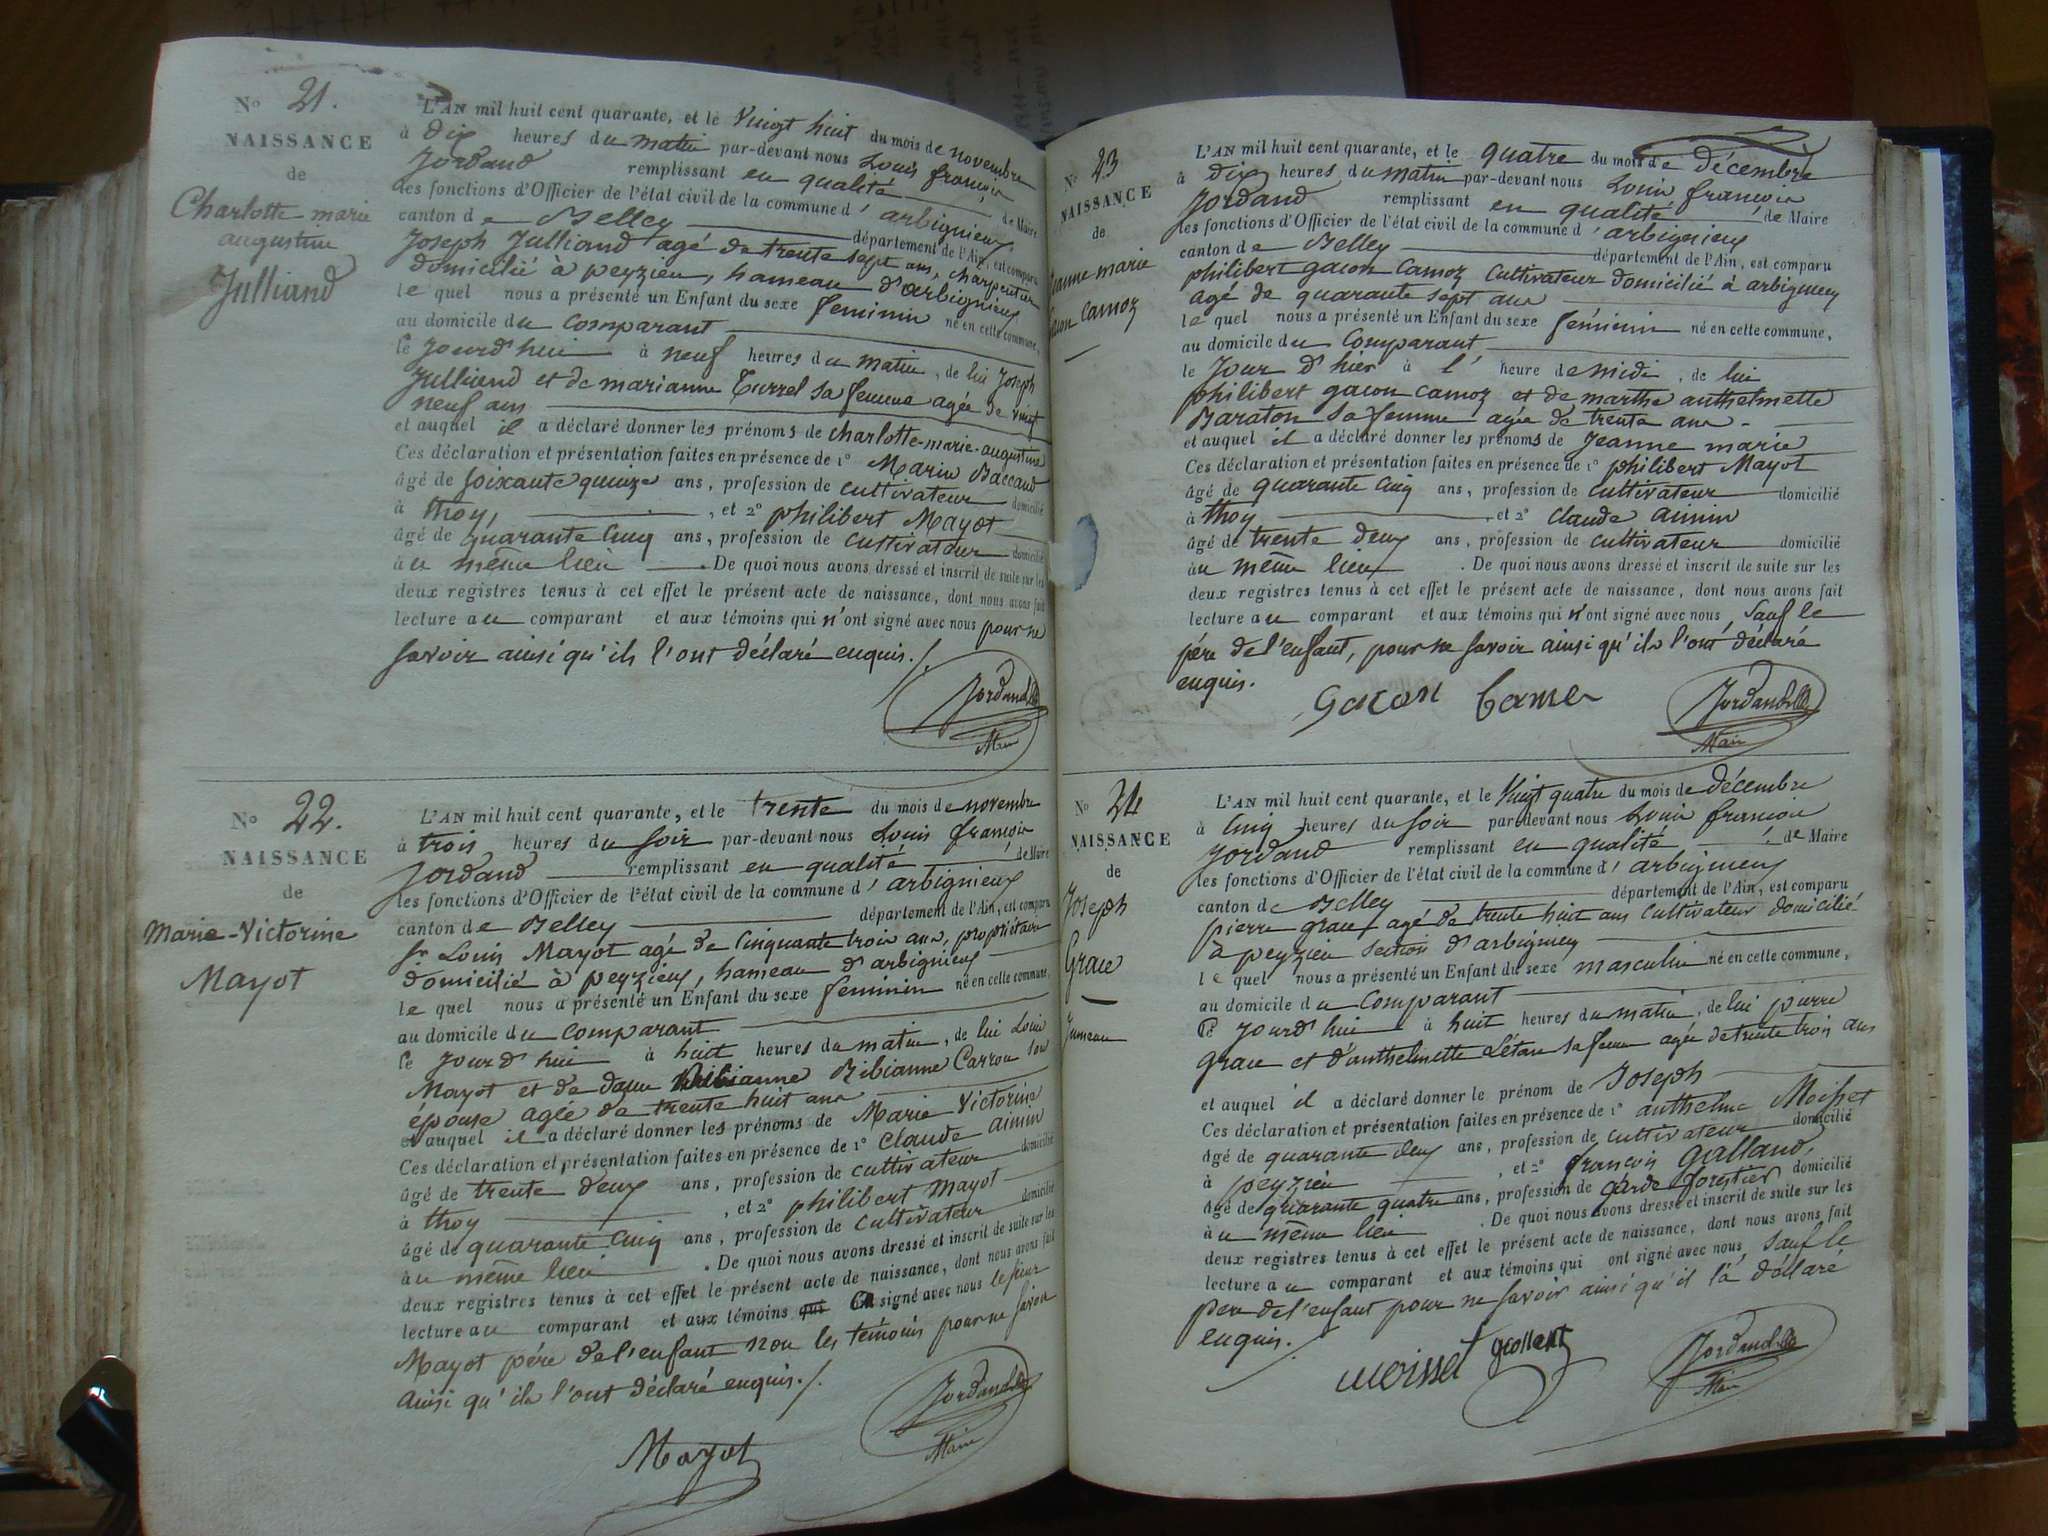 No 21.
NAISSANCE
de
Charlotte marie
augustine
Julliand
L'AN mil huit cent quarante, et le Vingt huit du mois de novembre
à dix heures du matin par-devant nous Louis françois
Jordand remplissant en qualité de Maire
les fonctions d'Officier de l'état civil de la commune d'arbignieux
canton de Belley département de l'Ain, est comparu
Joseph Julliand agé de trente sept ans, charpentier
domicilié à peyzieu, hameau d'arbignieux
le quel nous a présenté un Enfant du sexe feminin né en cette commune,
au domicile du comparant
ce jourd'hui à neuf heures du matin, de lui Joseph
Julliand et de marianne Turrel sa femme agée de vingt
neuf ans
et auquel il a déclaré donner les prénoms de charlotte-marie-augustine
Ces déclaration et présentation faites en présence de 1° Marin Baccand
âgé de soixante quinze ans, profession de cultivateur domicilié
à thoy, , et 2° philibert Mayot
âgé de quarante cinq ans, profession de cultivateur domicilié
au même lieu . De quoi nous avons dressé et inscrit de suite sur les
deux registres tenus à cet effet le présent acte de naissance, dont nous avons fait
lecture au comparant et aux témoins qui n'ont signé avec nous pour ne
savoir ainsi qu'ils l'ont déclaré enquis./.
Jordand
Maire
No 22.
NAISSANCE
de
Marie-Victorine
Mayot
L'AN mil huit cent quarante, et le trente du mois de novembre
à trois heures du soir par-devant nous Louis françois
Jordand remplissant en qualité de Maire
les fonctions d'Officier de l'état civil de la commune d'arbignieux
canton de Belley département de l'Ain, est comparu
Sr Louis Mayot agé de cinquante trois ans, propriétaire
domicilié à peyzieu, hameau d'arbignieux
le quel nous a présenté un Enfant du sexe feminin né en cette commune,
au domicile du comparant
ce jourd'hui à huit heures du matin, de lui Louis
Mayot et de dame Bibianne Carron son
épouse agée de trente huit ans
et auquel il a déclaré donner les prénoms de Marie Victorine
Ces déclaration et présentation faites en présence de 1° Claude aimin
âgé de trente deux ans, profession de cultivateur domicilié
à thoy , et 2° philibert Mayot
âgé de quarante cinq ans, profession de cultivateur domicilié
au même lieu . De quoi nous avons dressé et inscrit de suite sur les
deux registres tenus à cet effet le présent acte de naissance, dont nous avons fait
lecture au comparant et aux témoins qui signé avec nous le sieur
Mayot père de l'enfant non les témoins pour ne savoir
ainsi qu'ils l'ont déclaré enquis./.
Mayot
Jordand
Maire
No 23
NAISSANCE
de
Jeanne marie
gacon Camoz
L'AN mil huit cent quarante, et le quatre du mois de décembre
à dix heures du matin par-devant nous Louis françois
Jordand remplissant en qualité de Maire
les fonctions d'Officier de l'état civil de la commune d'arbignieux
canton de Belley département de l'Ain, est comparu
philibert gacon Camoz cultivateur domicilié à arbignieux
agé de quarante sept ans
le quel nous a présenté un Enfant du sexe féminin né en cette commune,
au domicile du comparant
le jour d'hier à l' heure de midi, de lui
philibert gacon Camoz et de marthe anthelmette
Baraton sa femme agée de trente ans
et auquel il a déclaré donner les prénoms de Jeanne marie
Ces déclaration et présentation faites en présence de 1° philibert Mayot
âgé de quarante cinq ans, profession de cultivateur domicilié
à thoy , et 2° claude aimin
âgé de trente deux ans, profession de cultivateur domicilié
au même lieu . De quoi nous avons dressé et inscrit de suite sur les
deux registres tenus à cet effet le présent acte de naissance, dont nous avons fait
lecture au comparant et aux témoins qui n'ont signé avec nous, sauf le
père de l'enfant, pour ne savoir ainsi qu'ils l'ont déclaré
enquis.
Gacon Camoz
Jordand
Maire
No 24
NAISSANCE
de
Joseph
Grace
Jumeau
L'AN mil huit cent quarante, et le Vingt quatre du mois de décembre
à cinq heures du soir par-devant nous Louis françois
Jordand remplissant en qualité de Maire
les fonctions d'Officier de l'état civil de la commune d'arbignieux
canton de Belley département de l'Ain, est comparu
pierre grace agé de trente huit ans cultivateur domicilié
à peyzieu section d'arbignieux
le quel nous a présenté un Enfant du sexe masculin né en cette commune,
au domicile du comparant
ce jourd'hui à huit heures du matin, de lui pierre
grace et d'anthelmette sa femme agée de trente trois ans
et auquel il a déclaré donner le prénom de Joseph
Ces déclaration et présentation faites en présence de 1° anthelme Moisset
âgé de quarante deux ans, profession de cultivateur domicilié
à peyzieu , et 2° françois galland,
âgé de quarante quatre ans, profession de garde forestier domicilié
au même lieu . De quoi nous avons dressé et inscrit de suite sur les
deux registres tenus à cet effet le présent acte de naissance, dont nous avons fait
lecture au comparant et aux témoins qui ont signé avec nous, sauf le
père de l'enfant pour ne savoir ainsi qu'il l'a déclaré
enquis.
moisset
Jordand
Maire